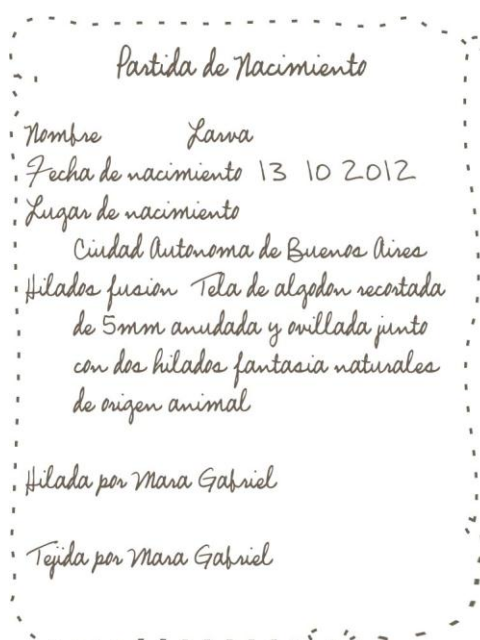 Partida de Nacimiento
Nombre Larva
Fecha de nacimiento 13 10 2012
Lugar de nacimiento
Ciudad Autonoma de Buenos Aires
Hilados fusion Tela de algodon recortada
de 5mm anudada y ovillada junto
con dos hilados fantasia naturales
de origen animal
Hilada por Mara Gabriel
Tejida por Mara Gabriel